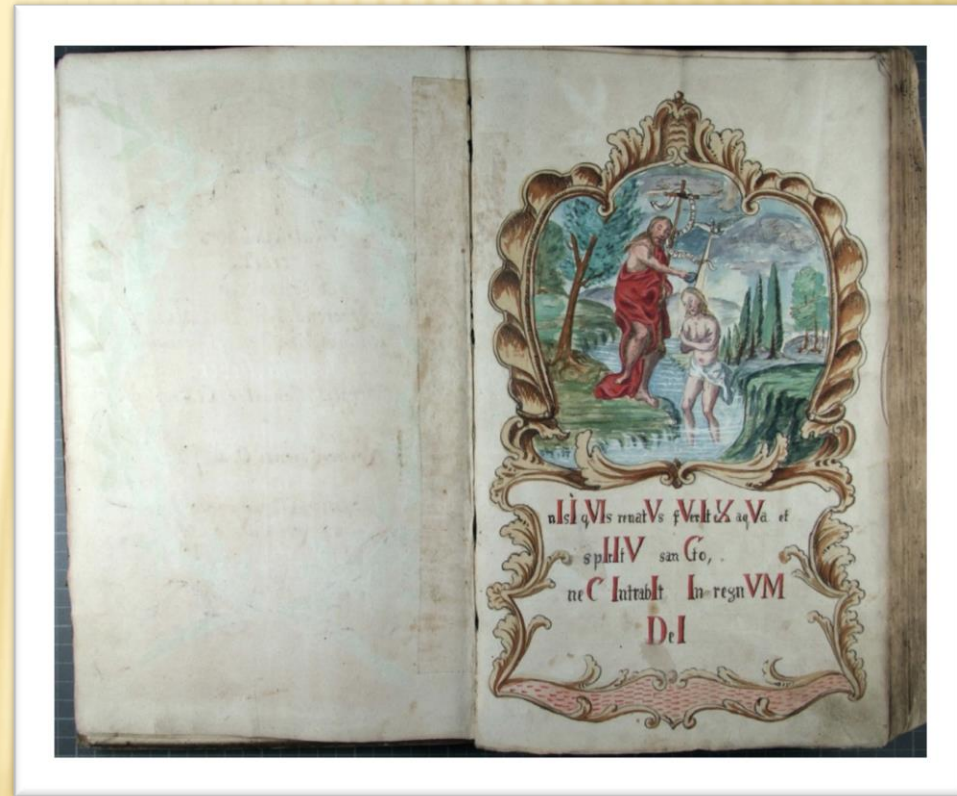 nIsI qVIs renatVs fVerIt eX aqVa et
spIrItV sanCto,
neC IntrabIt In regnVM
DeI